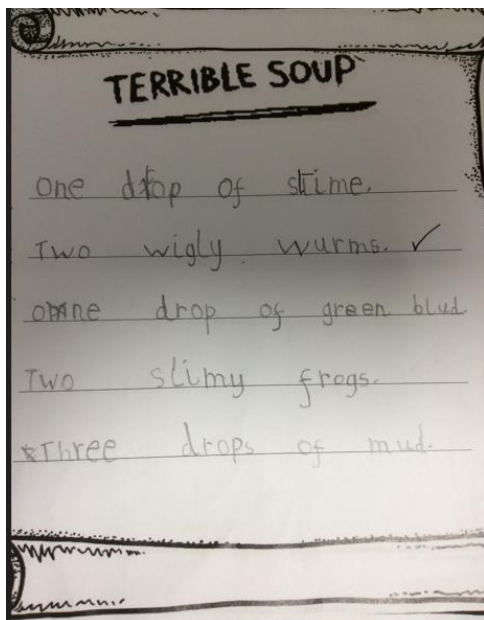 TERRIBLE SOUP
One drop of slime.
Two wigly wurms. ✓
one drop of green blud
Two slimy frogs.
Three drops of mud.